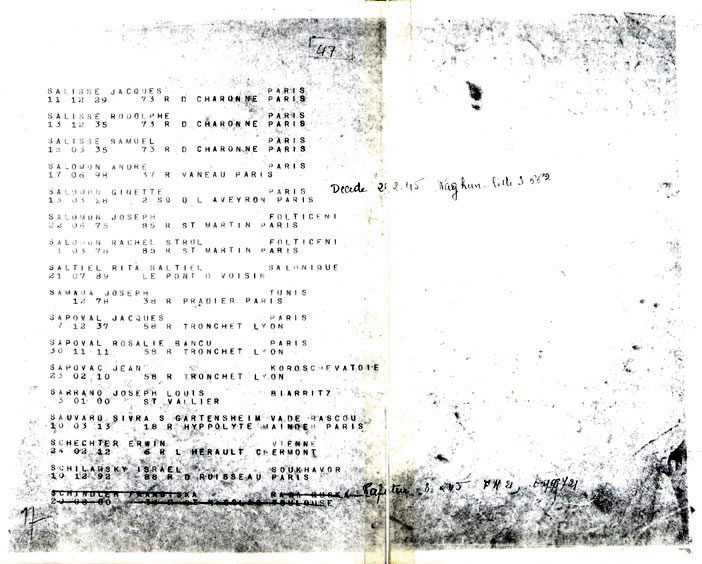 47
SALISSE JACQUES PARIS
11 12 29 73 R D CHARONNE PARIS
SALISSE RODOLPHE PARIS
13 12 35 73 R D CHARONNE PARIS
SALISSE SAMUEL PARIS
15 03 35 73 R D CHARONNE PARIS
SALOMON ANDRE PARIS
17 06 98 37 R VANEAU PARIS
SALOMON GINETTE PARIS
13 03 28 2 SQ D L AVEYRON PARIS
Décédé 2.45
SALOMON JOSEPH FOLTICENI
22 06 75 85 R ST MARTIN PARIS
SALOMON RACHEL STRUL FOLTICENI
1 03 78 85 R ST MARTIN PARIS
SALTIEL RITA SALTIEL SALONIQUE
21 07 89 LE PONT D VOISIN
SAMAMA JOSEPH TUNIS
12 78 38 R PRADIER PARIS
SAPOVAL JACQUES PARIS
7 12 37 58 R TRONCHET LYON
SAPOVAL ROSALIE BANCU PARIS
30 11 11 58 R TRONCHET LYON
SAPOVAC JEAN KOROSCHEVATOIE
23 02 10 58 R TRONCHET LYON
SARRANO JOSEPH LOUIS BIARRITZ
3 01 00 ST VALLIER
SAUVARD SIVRA S GARTENSHEIM VADE RASCOU
10 03 13 18 R HYPPOLYTE MAINDER PARIS
SCHECHTER ERWIN VIENNE
24 02 12 6 R L HERAULT CHERMONT
SCHILAWSKY ISRAEL SOUKHAVOR
10 12 92 88 R D RUISSEAU PARIS
SCHINDLER FRANZISKA RAWA RUSKA
ST NICOLAS TOULOUSE
17